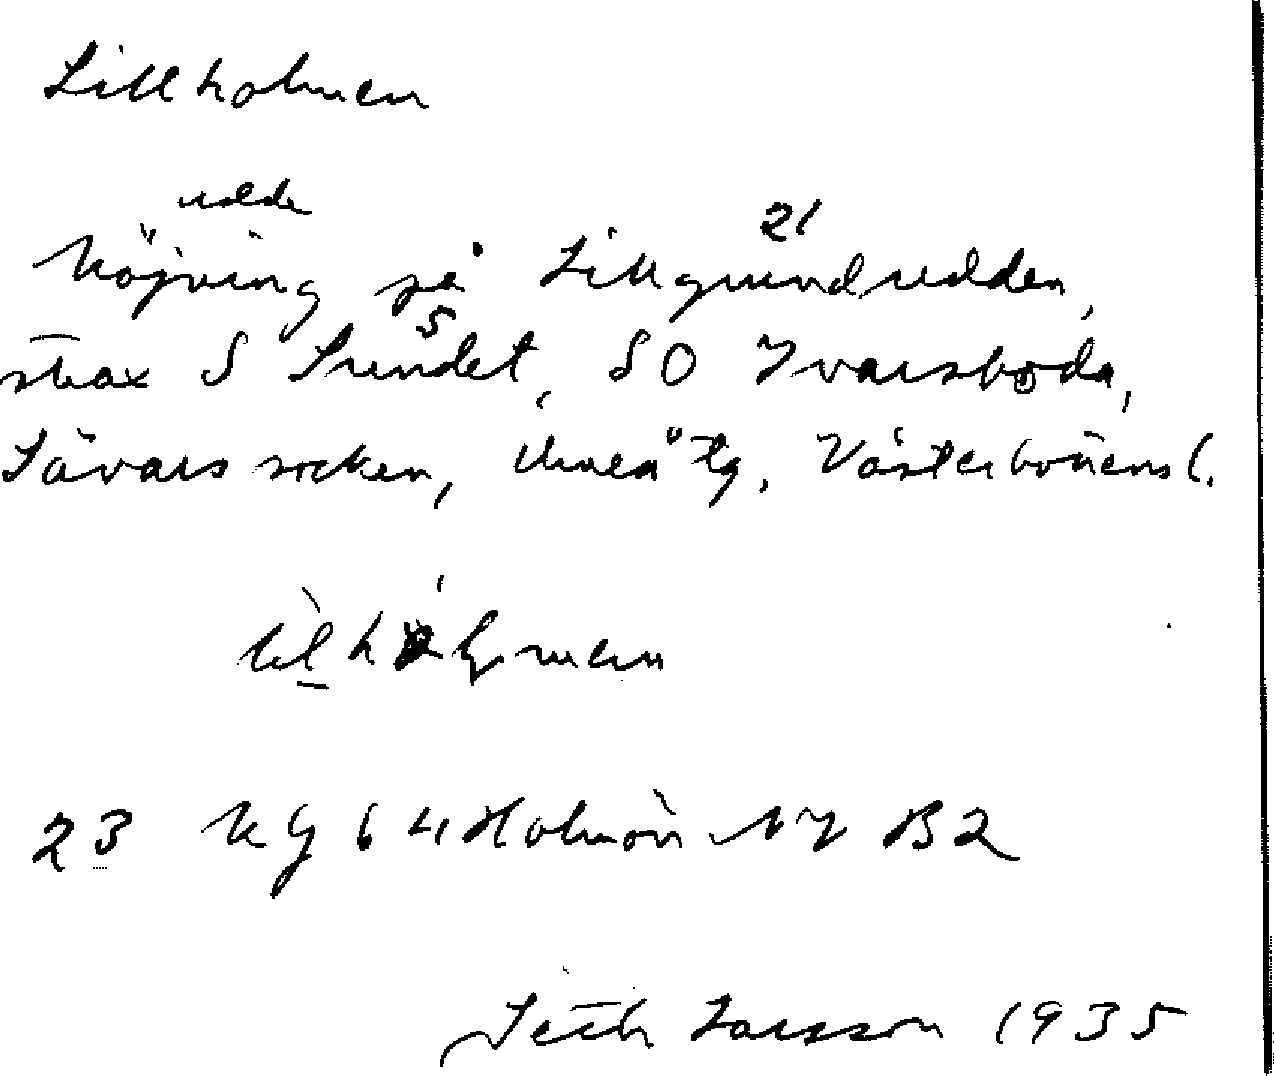 Lillholmen
udde
Höjning på Lillgrundudden, 21
strax S Sundet, SO Ivarsboda, 5
Sävars socken, Umeå tg, Västerbottens l.
23 KG 64 Holmön NV B2
Seth Larsson 1935